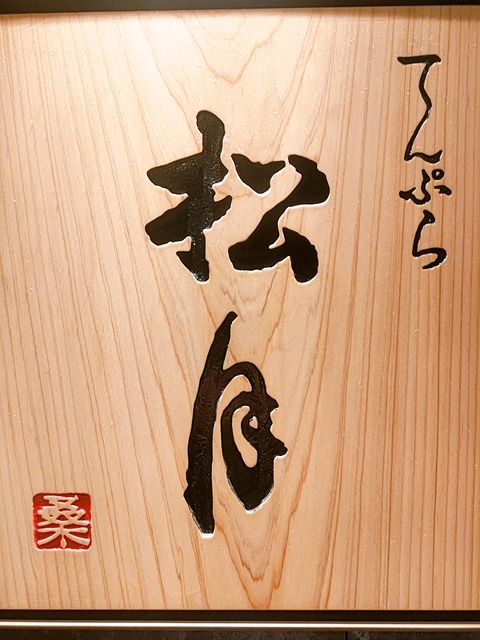 てんぷら
松月
桑